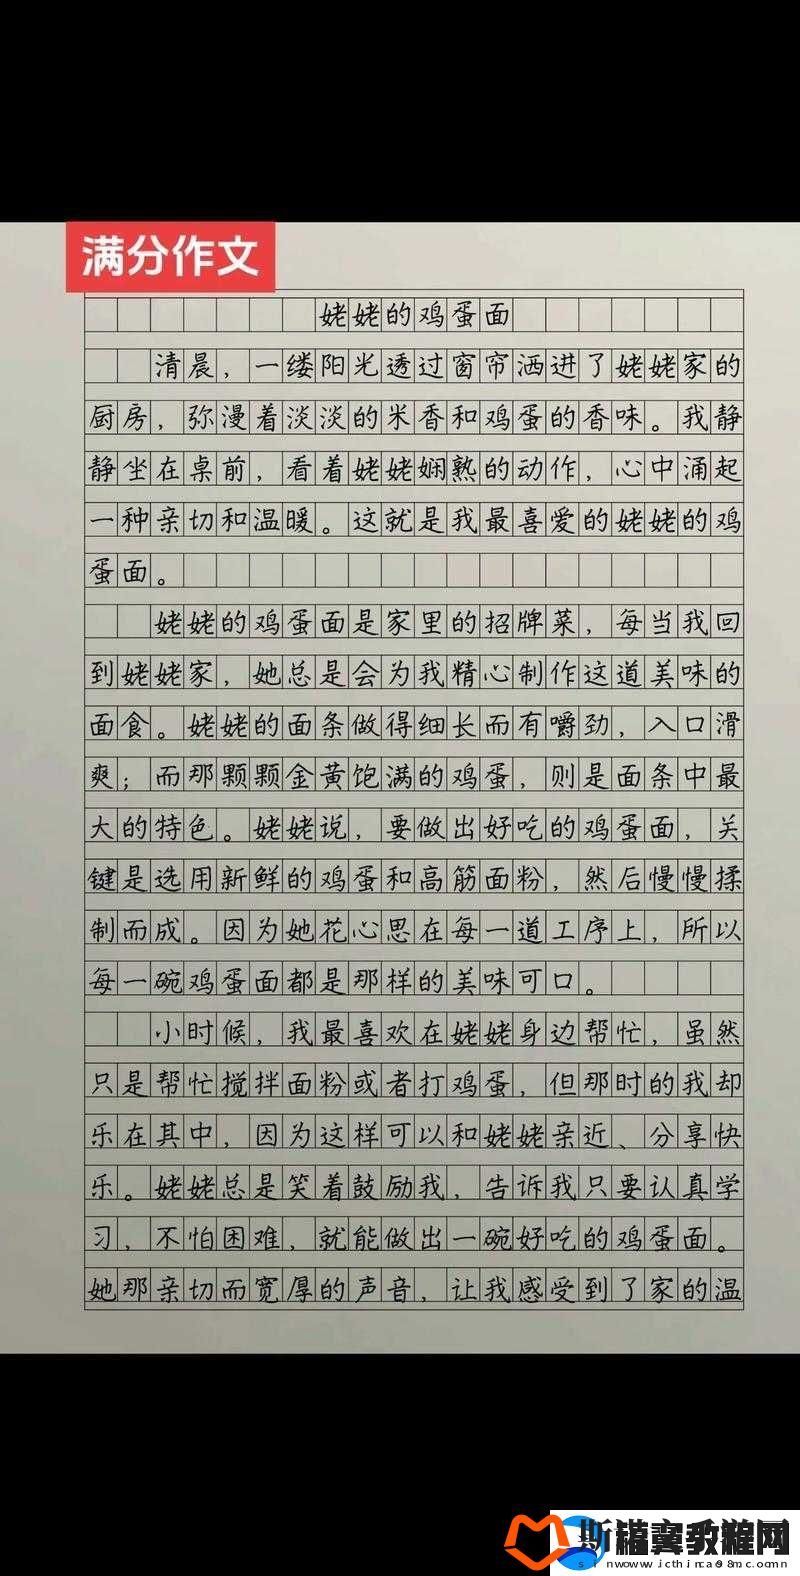 满分作文
姥姥的鸡蛋面
清晨，一缕阳光透过窗帘洒进了姥姥家的
厨房，弥漫着淡淡的米香和鸡蛋的香味。我静
静坐在桌前，看着姥姥娴熟的动作，心中涌起
一种亲切和温暖。这就是我最喜爱的姥姥的鸡
蛋面。
姥姥的鸡蛋面是家里的招牌菜，每当我回
到姥姥家，她总是会为我精心制作这道美味的
面食。姥姥的面条做得细长而有嚼劲，入口滑
爽；而那颗颗金黄饱满的鸡蛋，则是面条中最
大的特色。姥姥说，要做出好吃的鸡蛋面，关
键是选用新鲜的鸡蛋和高筋面粉，然后慢慢揉
制而成。因为她花心思在每一道工序上，所以
每一碗鸡蛋面都是那样的美味可口。
小时候，我最喜欢在姥姥身边帮忙，虽然
只是帮忙搅拌面粉或者打鸡蛋，但那时的我却
乐在其中，因为这样可以和姥姥亲近、分享快
乐。姥姥总是笑着鼓励我，告诉我只要认真学
习，不怕困难，就能做出一碗好吃的鸡蛋面。
她那亲切而宽厚的声音，让我感受到了家的温